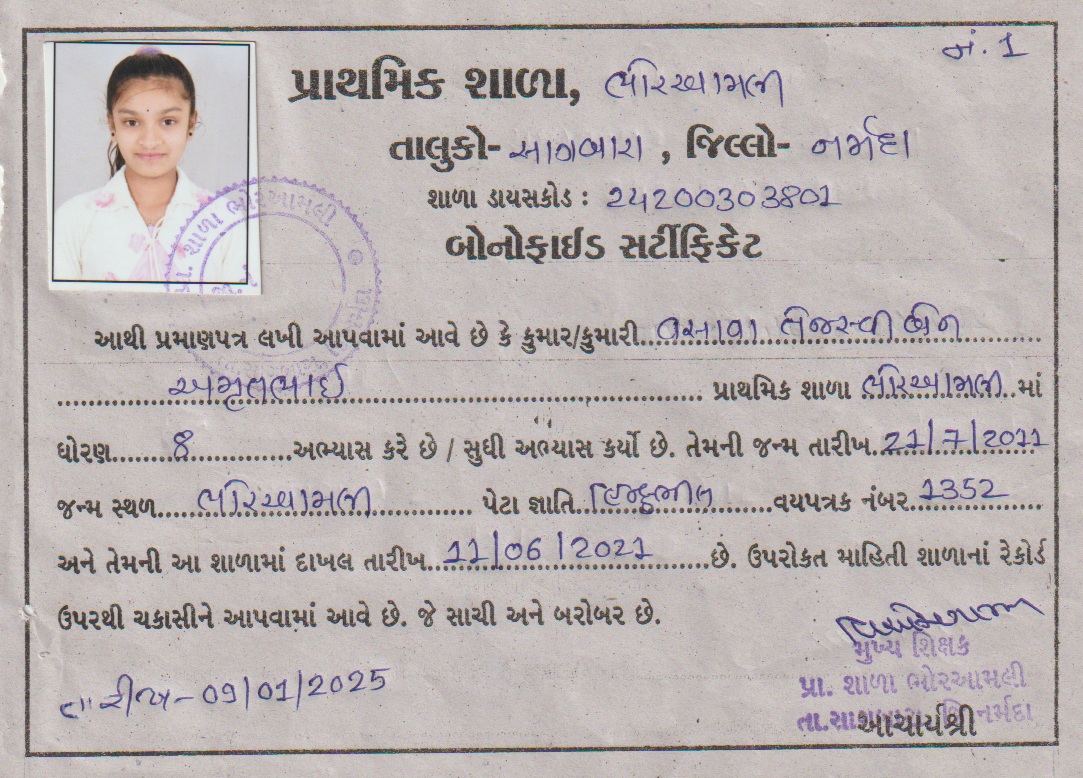 નં. 1
પ્રાથમિક શાળા, ભોરઆમલી
તાલુકો- સાગબારા , જિલ્લો- નર્મદા
શાળા ડાયસકોડ : 24200303801
બોનોફાઈડ સર્ટીફિકેટ
પ્રા. શાળા ભોરઆમલી
આથી પ્રમાણપત્ર લખી આપવામાં આવે છે કે કુમાર/કુમારી વસાવા તેજસ્વી બેન
અમૃતભાઈ પ્રાથમિક શાળા ભોરઆમલી માં
ધોરણ 8 અભ્યાસ કરે છે / સુધી અભ્યાસ કર્યો છે. તેમની જન્મ તારીખ 21/7/2011
જન્મ સ્થળ ભોરઆમલી પેટા જ્ઞાતિ હિન્દુભીલ વયપત્રક નંબર 1352
અને તેમની આ શાળામાં દાખલ તારીખ 11/06/2021 છે. ઉપરોકત માહિતી શાળાનાં રેકોર્ડ
ઉપરથી ચકાસીને આપવામાં આવે છે. જે સાચી અને બરોબર છે.
તારીખ - 09/01/2025
મુખ્ય શિક્ષક
પ્રા. શાળા ભોરઆમલી
તા.સાગબારા જિ.નર્મદા
આચાર્યશ્રી